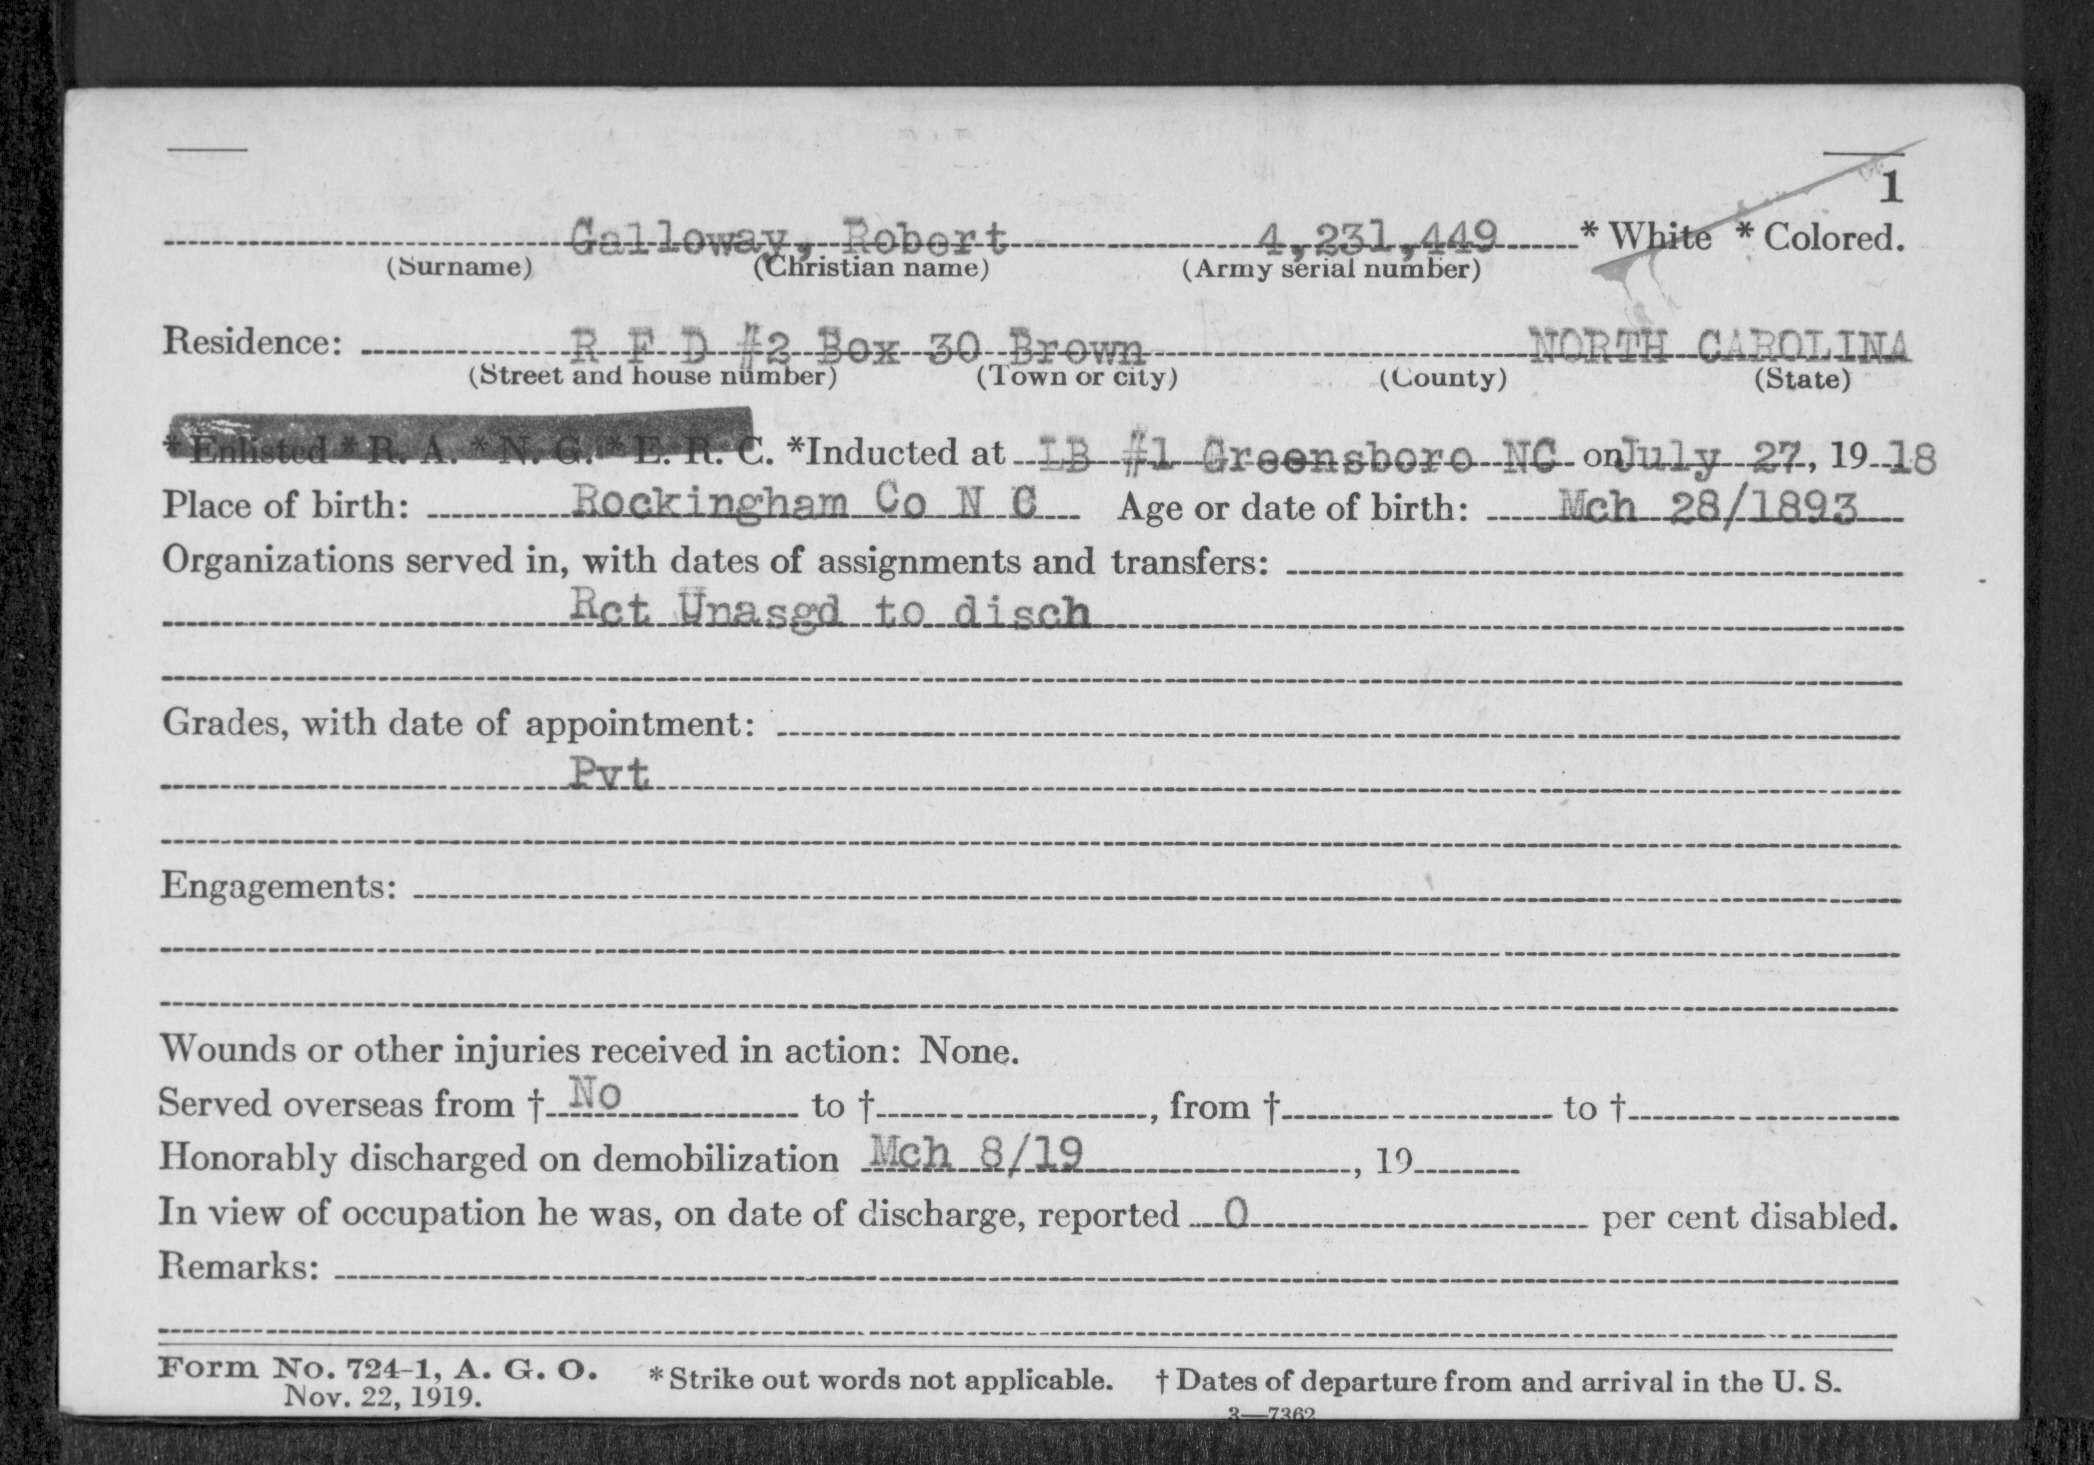 1
Galloway, Robert 4,231,449 * White * Colored.
(Surname) (Christian name) (Army serial number)
Residence: R F D #2 Box 30 Brown NORTH CAROLINA
(Street and house number) (Town or city) (County) (State)
* Enlisted * R. A. * N. G. * E. R. C. *Inducted at LB #1 Greensboro NC on July 27, 19 18
Place of birth: Rockingham Co N C Age or date of birth: Mch 28/1893
Organizations served in, with dates of assignments and transfers:
Rct Unasgd to disch
Grades, with date of appointment:
Pvt
Engagements:
Wounds or other injuries received in action: None.
Served overseas from † No to †, from † to †
Honorably discharged on demobilization Mch 8/19, 19
In view of occupation he was, on date of discharge, reported 0 per cent disabled.
Remarks:
Form No. 724-1, A. G. O. * Strike out words not applicable. † Dates of departure from and arrival in the U. S.
Nov. 22, 1919.
3—7362